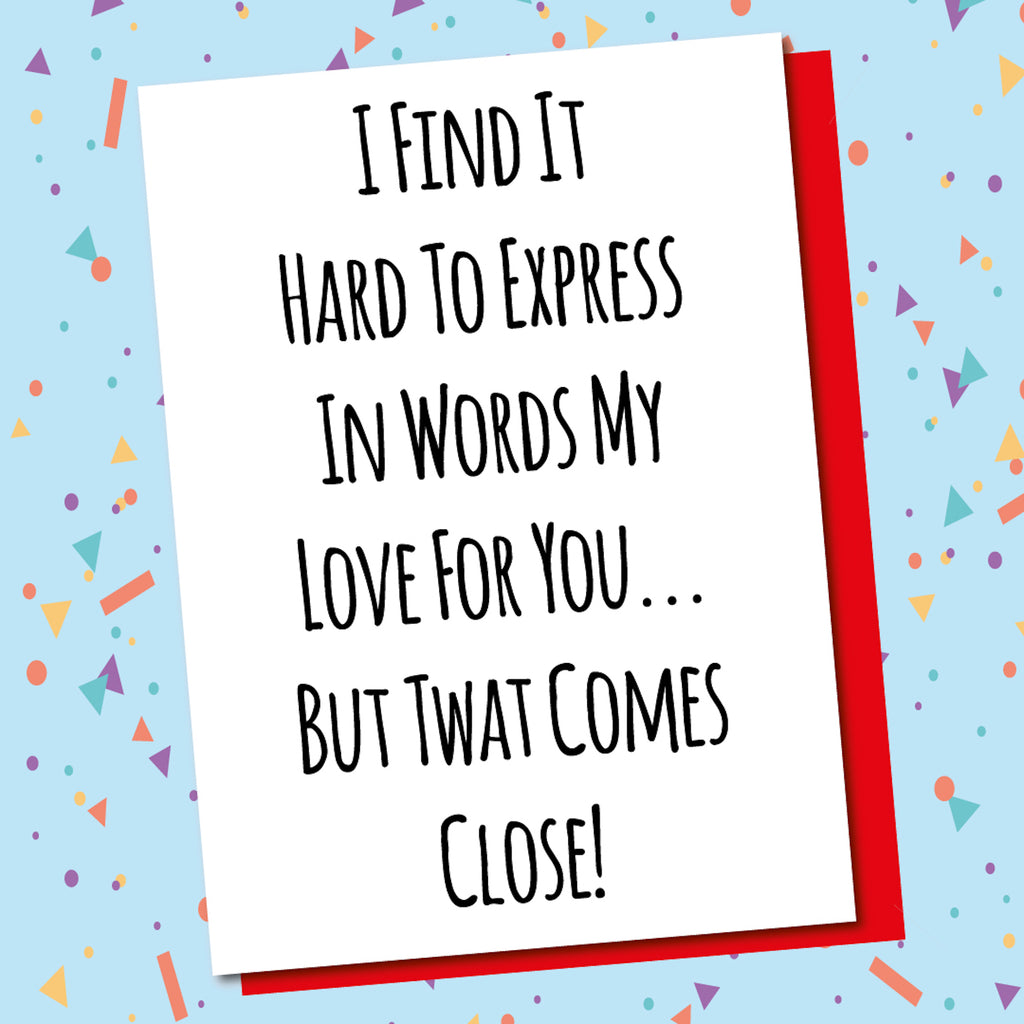 I Find It
Hard To Express
In Words My
Love For You...
But Twat Comes
Close!